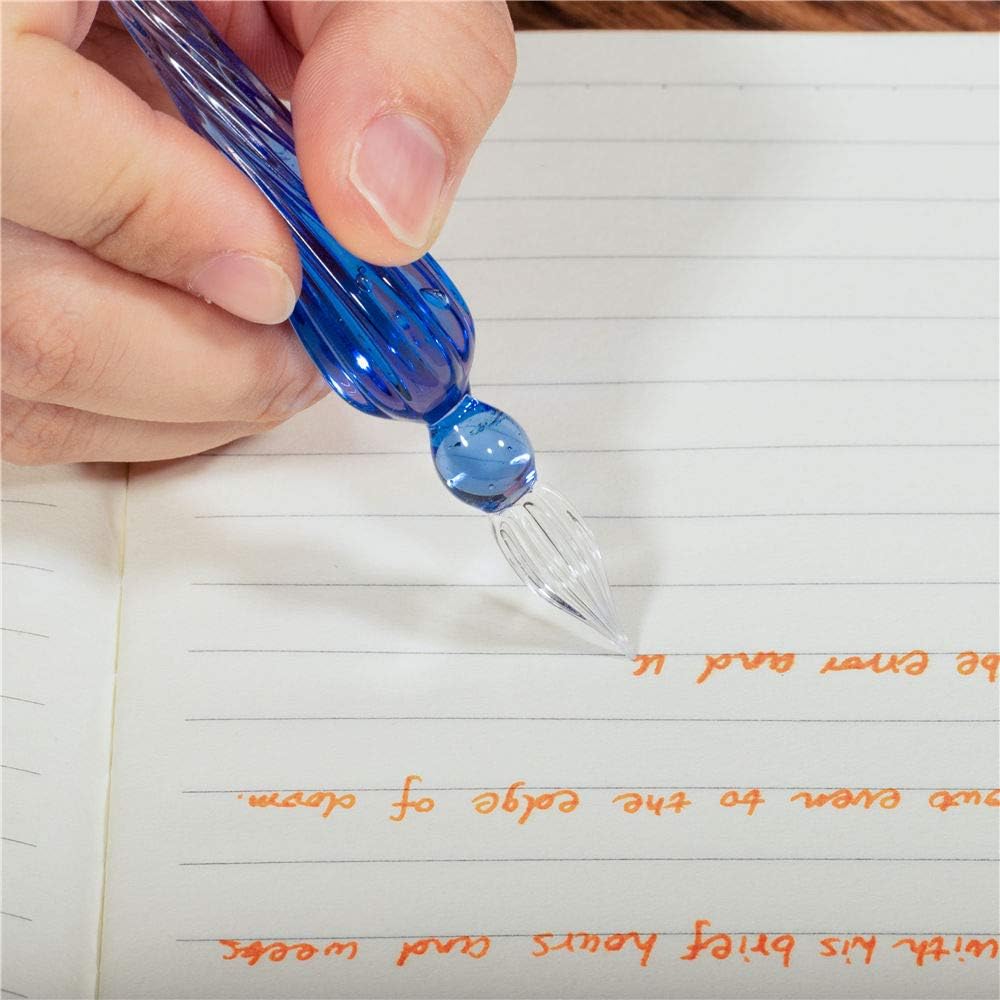 with his brief hours and weeks
out even to the edge of doom.
be error and u